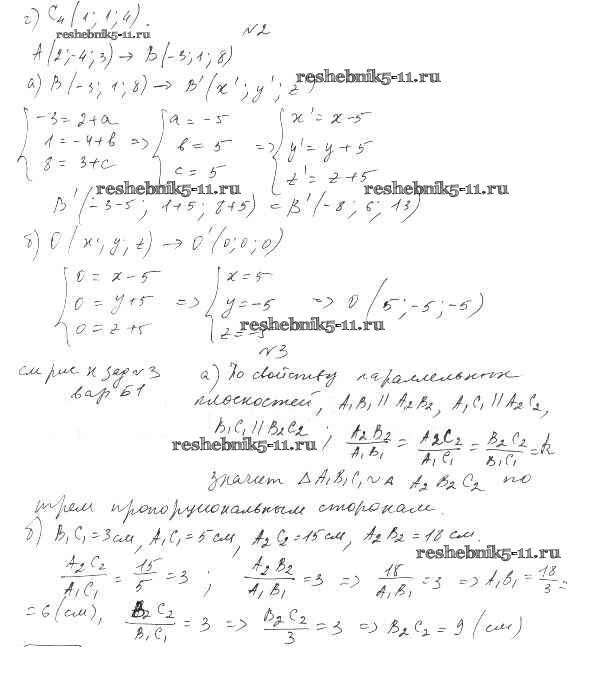 г) C₄(1; 1; 4).
reshebnik5-11.ru
№2
A(2;-4;3) → B(-3;1;8)
а) B(-3; 1; 8) → B'(x'; y'; z')
reshebnik5-11.ru
{ -3 = 2+a { a = -5 { x' = x-5
1 = -4+b => b = 5 => y' = y+5
8 = 3+c c = 5 z' = z+5
reshebnik5-11.ru reshebnik5-11.ru
B'(-3-5; 1+5; 8+5) = B'(-8; 6; 13)
б) O(x; y; z) → O'(0; 0; 0)
{ 0 = x-5 { x = 5
0 = y+5 => y = -5 => O(5; -5; -5)
0 = z+5 z = -5
reshebnik5-11.ru
№3
см рис к зад №3
вар Б1
а) По свойству параллельных
плоскостей, A₁B₁ || A₂B₂, A₁C₁ || A₂C₂,
B₁C₁ || B₂C₂; A₂B₂/A₁B₁ = A₂C₂/A₁C₁ = B₂C₂/B₁C₁ = k
reshebnik5-11.ru
значит ΔA₁B₁C₁ ~ Δ A₂B₂C₂ по
трем пропорциональным сторонам.
б) B₁C₁ = 3 см, A₁C₁ = 5 см, A₂C₂ = 15 см, A₂B₂ = 18 см.
reshebnik5-11.ru
A₂C₂/A₁C₁ = 15/5 = 3; A₂B₂/A₁B₁ = 3 => 18/A₁B₁ = 3 => A₁B₁ = 18/3 =
= 6 (см), B₂C₂/B₁C₁ = 3 => B₂C₂/3 = 3 => B₂C₂ = 9 (см)